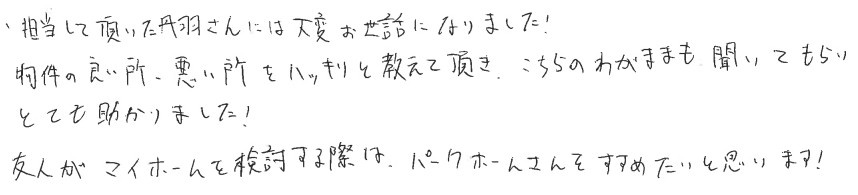 ・担当して頂いた丹羽さんには大変お世話になりました!
物件の良い所、悪い所をハッキリと教えて頂き、こちらのわがままも聞いてもらい
とても助かりました!
友人がマイホームを検討する際は、パークホームさんをすすめたいと思います!